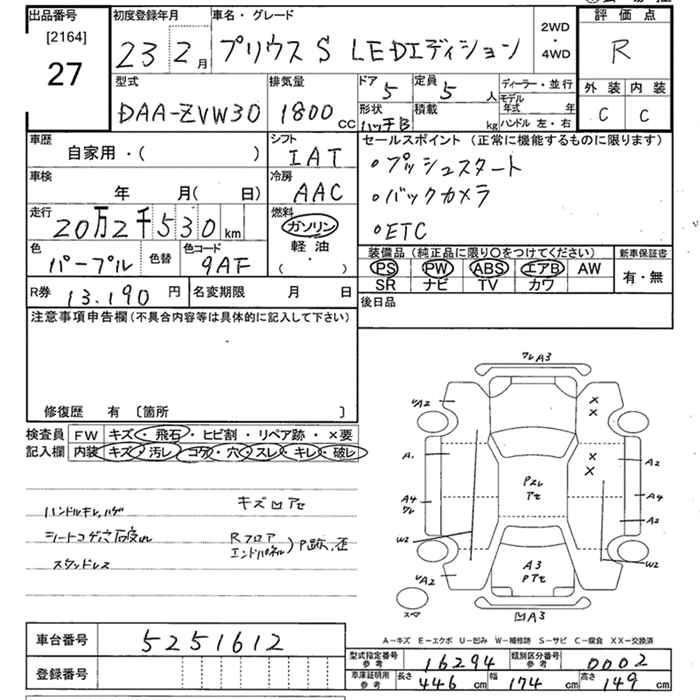 出品番号
[2164]
27
初度登録年月
23 2月
車名・グレード
プリウス S LEDエディション
2WD
・
4WD
評価点
R
外装 内装
C C
型式
DAA-ZVW30
排気量
1800 cc
ドア
5
定員
5人
ディーラー・並行
モデル年式 年
形状
ハッチB
積載
kg
ハンドル 左・右
車歴
自家用・( )
シフト
IAT
セールスポイント (正常に機能するものに限ります)
•プッシュスタート
•バックカメラ
•ETC
車検
年 月( 日)
冷房
AAC
走行
20万2千530km
燃料
ガソリン
軽油
( ・ )
色
パープル
色替
色コード
9AF
装備品 (純正品に限り○をつけてください)
PS PW ABS エアB AW
SR ナビ TV カワ
新車保証書
有・無
R券 13,190円
名変期限 月 日
後日品
注意事項申告欄(不具合内容等は具体的に記入して下さい)
修復歴 有 〔箇所 〕
検査員記入欄
FW キズ・飛石・ヒビ割・リペア跡・×要
内装 キズ・汚レ・コゲ・穴・スレ・キレ・破レ
ハンドルキレ,ハゲ
キズ凹アセ
スタッドレス
Rフロア
エンドパネル)P跡、歪
ワレA3
A2
A.
A4
ワレ
W2
A2
A2
A4
A2
W2
Pスレ
アセ
A3
Pアセ
凹A3
スペア
A―キズ E―エクボ U―凹み W―補修跡 S―サビ C―腐食 XX―交換済
車台番号 5251612
登録番号
型式指定番号 参考 16294
類別区分番号 参考 0002
車庫証明用 参考 長さ 446cm 幅 174cm 高さ 149cm